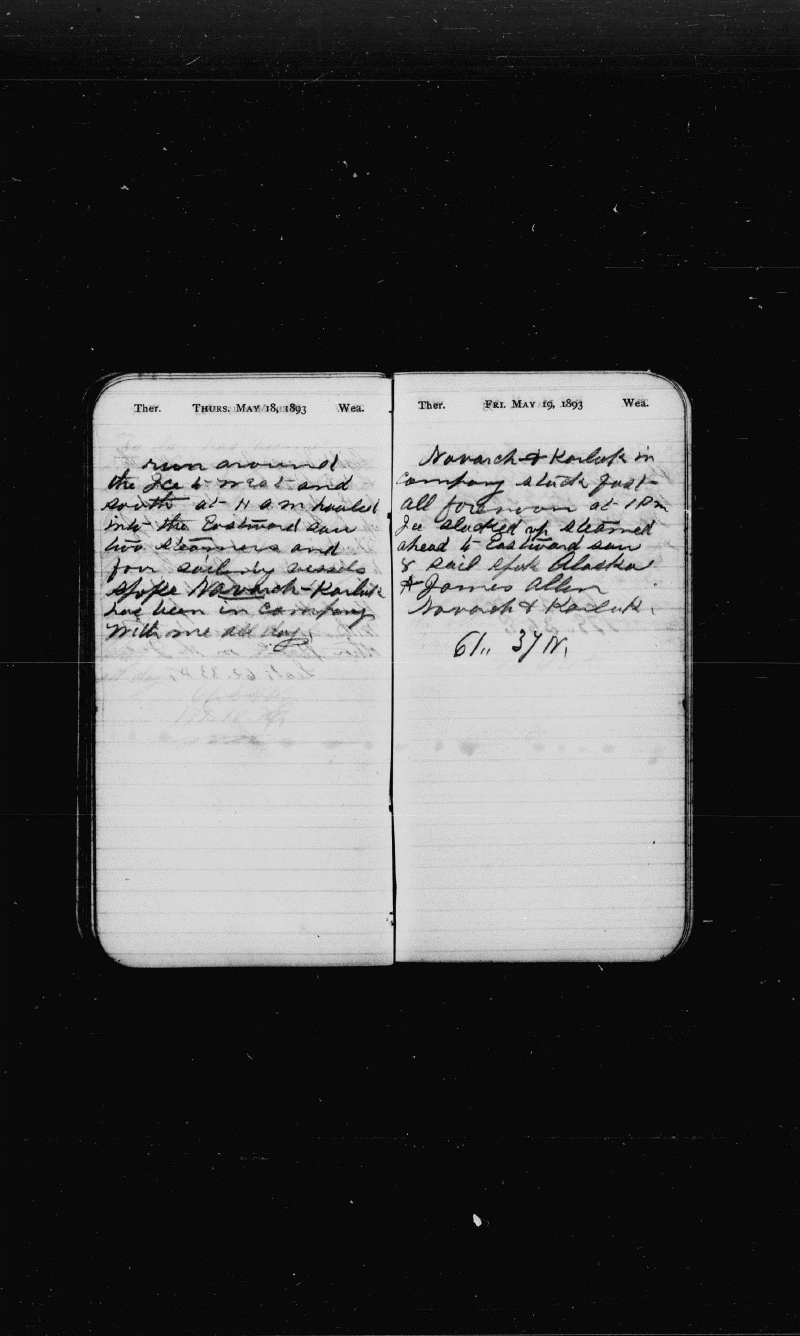 Ther. THURS. MAY 18, 1893 Wea.
run around
the Ice to west and
south at 11 a m hauled
into the Eastward saw
two steamers and
four sailing vessels
spoke Navarch - Karluk
has been in company
with me all day
Ther. FRI. MAY 19, 1893 Wea.
Navarch & Karluk in
company stuck fast
all forenoon at 1 Pm
Ice slacked up steamed
ahead to Eastward saw
8 sail spok Alaska
& James Allen
Navarch & Karluk.
61,, 37 N.